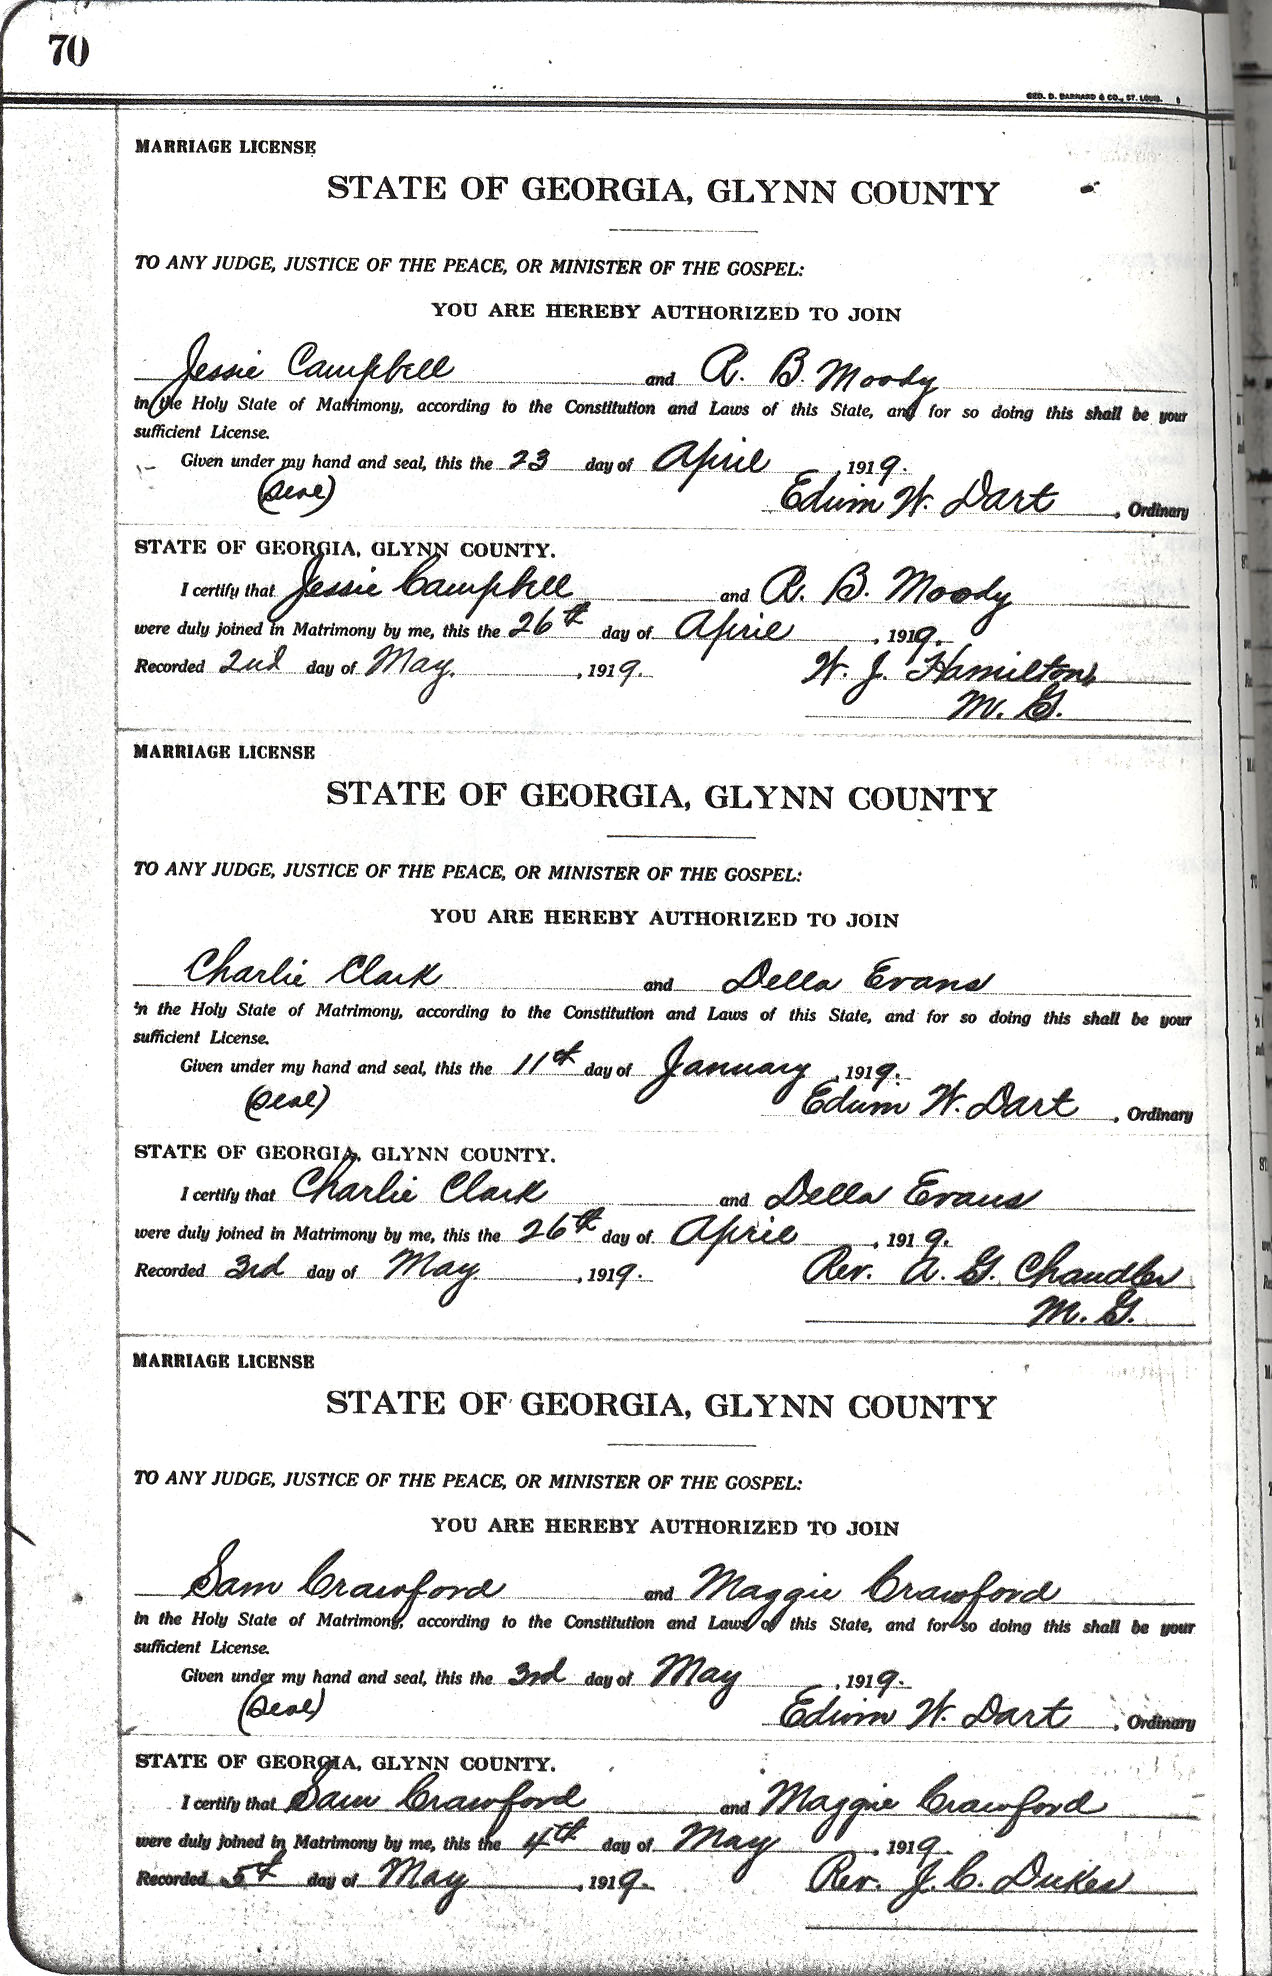 70
GEO. D. BARNARD & CO., ST. LOUIS.
MARRIAGE LICENSE
STATE OF GEORGIA, GLYNN COUNTY
TO ANY JUDGE, JUSTICE OF THE PEACE, OR MINISTER OF THE GOSPEL:
YOU ARE HEREBY AUTHORIZED TO JOIN
Jessie Campbell and R. B. Moody
in the Holy State of Matrimony, according to the Constitution and Laws of this State, and for so doing this shall be your
sufficient License.
Given under my hand and seal, this the 23 day of April, 1919.
(Seal) Edwin W. Dart, Ordinary
STATE OF GEORGIA, GLYNN COUNTY.
I certify that Jessie Campbell and R. B. Moody
were duly joined in Matrimony by me, this the 26th day of April, 1919.
Recorded 2nd day of May, 1919. W. J. Hamilton,
M. G.
MARRIAGE LICENSE
STATE OF GEORGIA, GLYNN COUNTY
TO ANY JUDGE, JUSTICE OF THE PEACE, OR MINISTER OF THE GOSPEL:
YOU ARE HEREBY AUTHORIZED TO JOIN
Charlie Clark and Della Evans
in the Holy State of Matrimony, according to the Constitution and Laws of this State, and for so doing this shall be your
sufficient License.
Given under my hand and seal, this the 11th day of January, 1919.
(Seal) Edwin W. Dart, Ordinary
STATE OF GEORGIA, GLYNN COUNTY.
I certify that Charlie Clark and Della Evans
were duly joined in Matrimony by me, this the 26th day of April, 1919.
Recorded 3rd day of May, 1919. Rev. A. G. Chandler
M. G.
MARRIAGE LICENSE
STATE OF GEORGIA, GLYNN COUNTY
TO ANY JUDGE, JUSTICE OF THE PEACE, OR MINISTER OF THE GOSPEL:
YOU ARE HEREBY AUTHORIZED TO JOIN
Sam Crawford and Maggie Crawford
in the Holy State of Matrimony, according to the Constitution and Laws of this State, and for so doing this shall be your
sufficient License.
Given under my hand and seal, this the 3rd day of May, 1919.
(Seal) Edwin W. Dart, Ordinary
STATE OF GEORGIA, GLYNN COUNTY.
I certify that Sam Crawford and Maggie Crawford
were duly joined in Matrimony by me, this the 4th day of May, 1919.
Recorded 5th day of May, 1919. Rev. J. C. Dukes